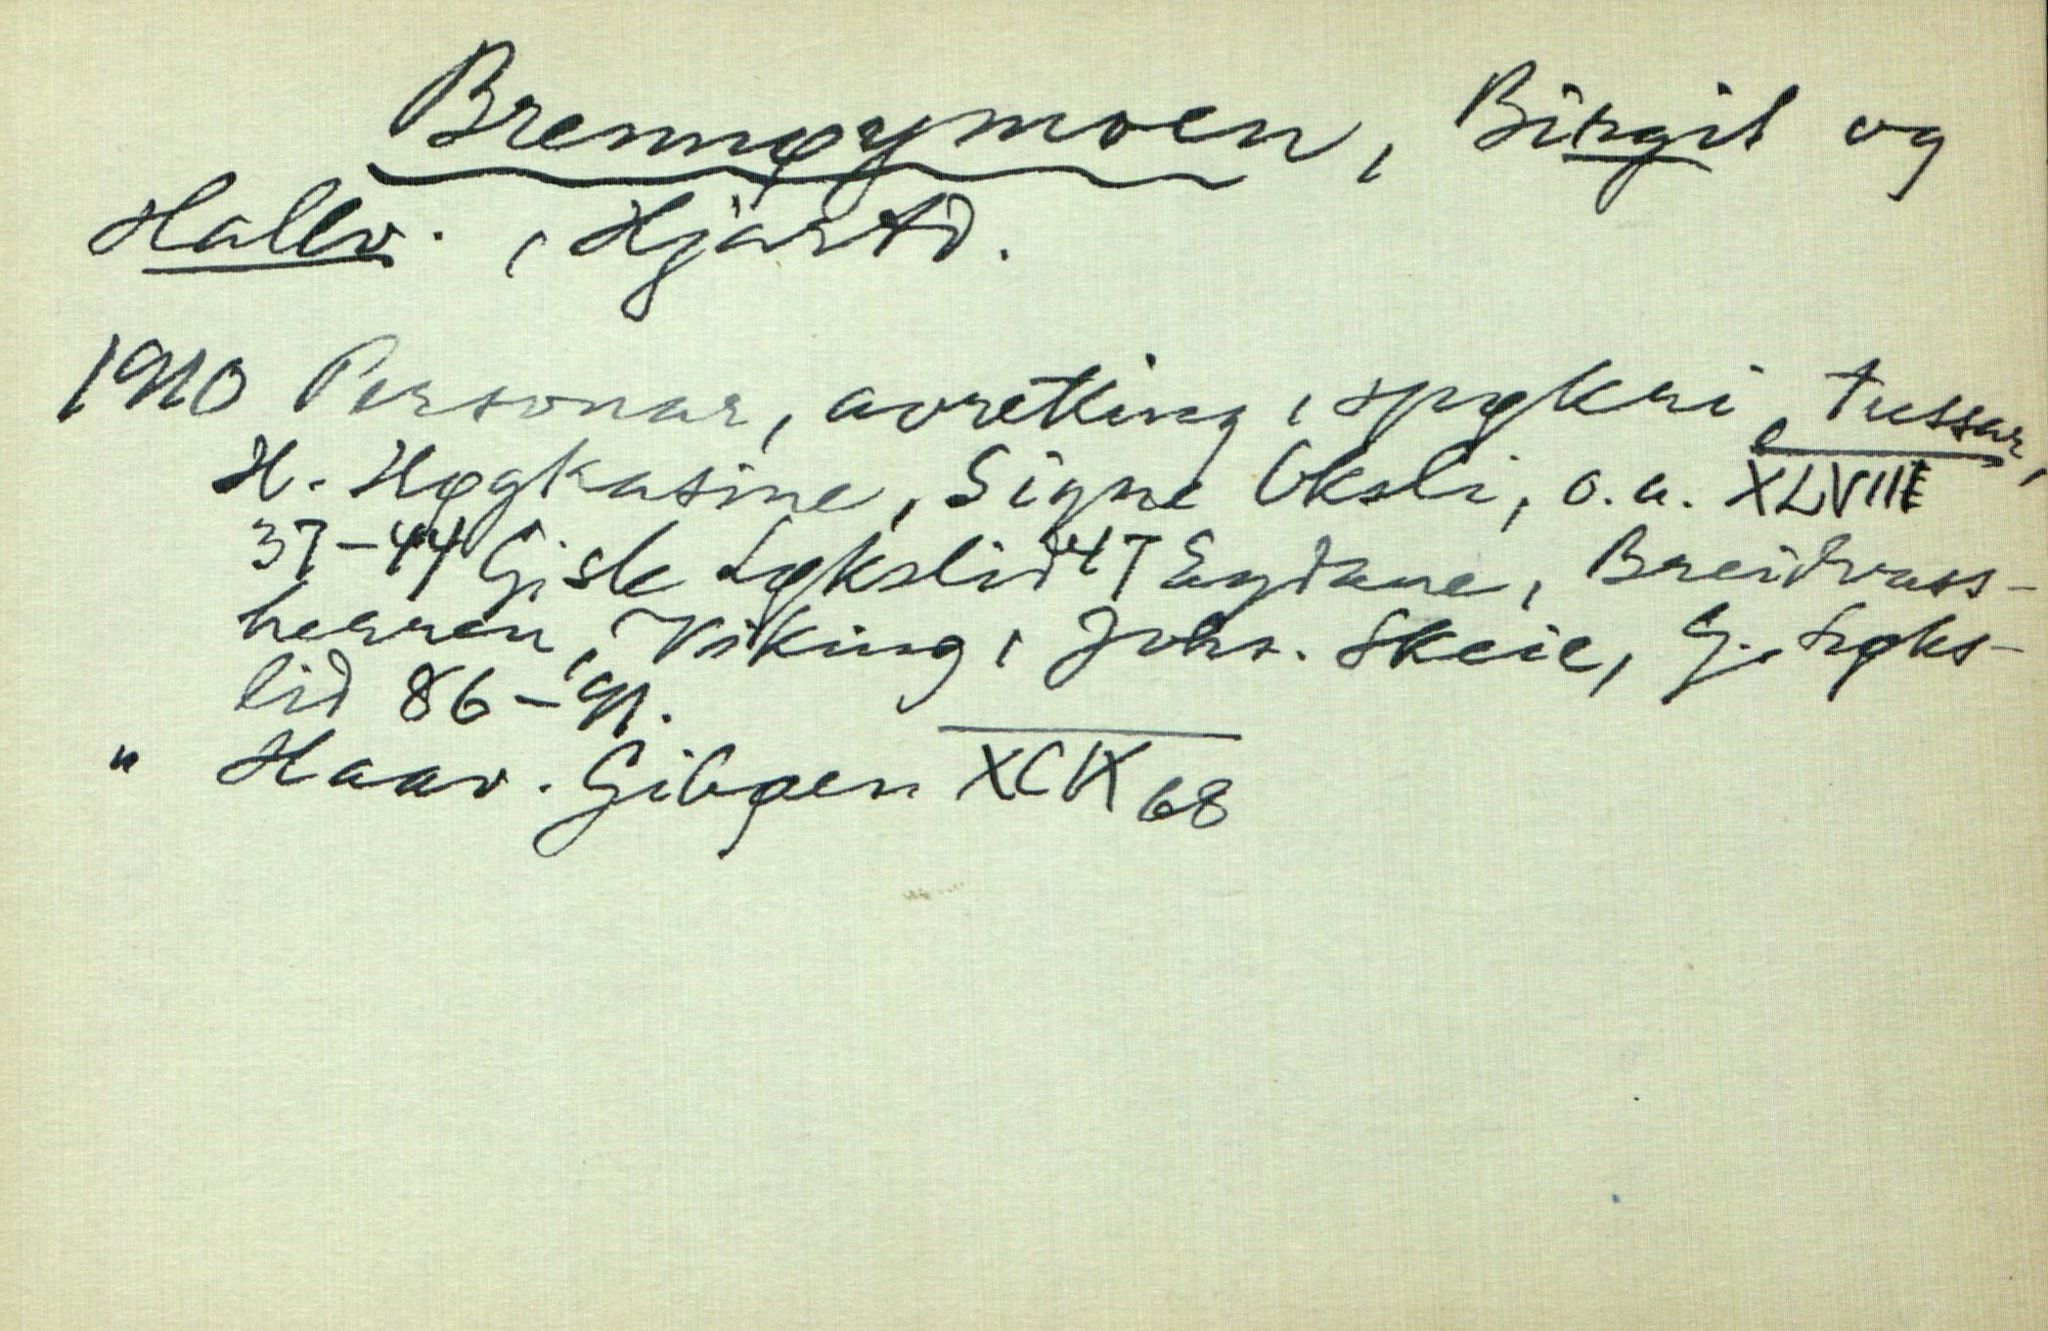 Brennøymoen, Birgit og
Hallv., Hjartd.
1910 Personar, avretting, spøkri, tussar,
H. Høgkasine, Signe Oksli, o.a. XLVIII
37-44 Gisle Løkslid 47 Eydane, Breidvass-
herren, Viking, Johs. Skeie, G. Løks-
lid 86-91.
" Haav. Gibøen XCIX 68